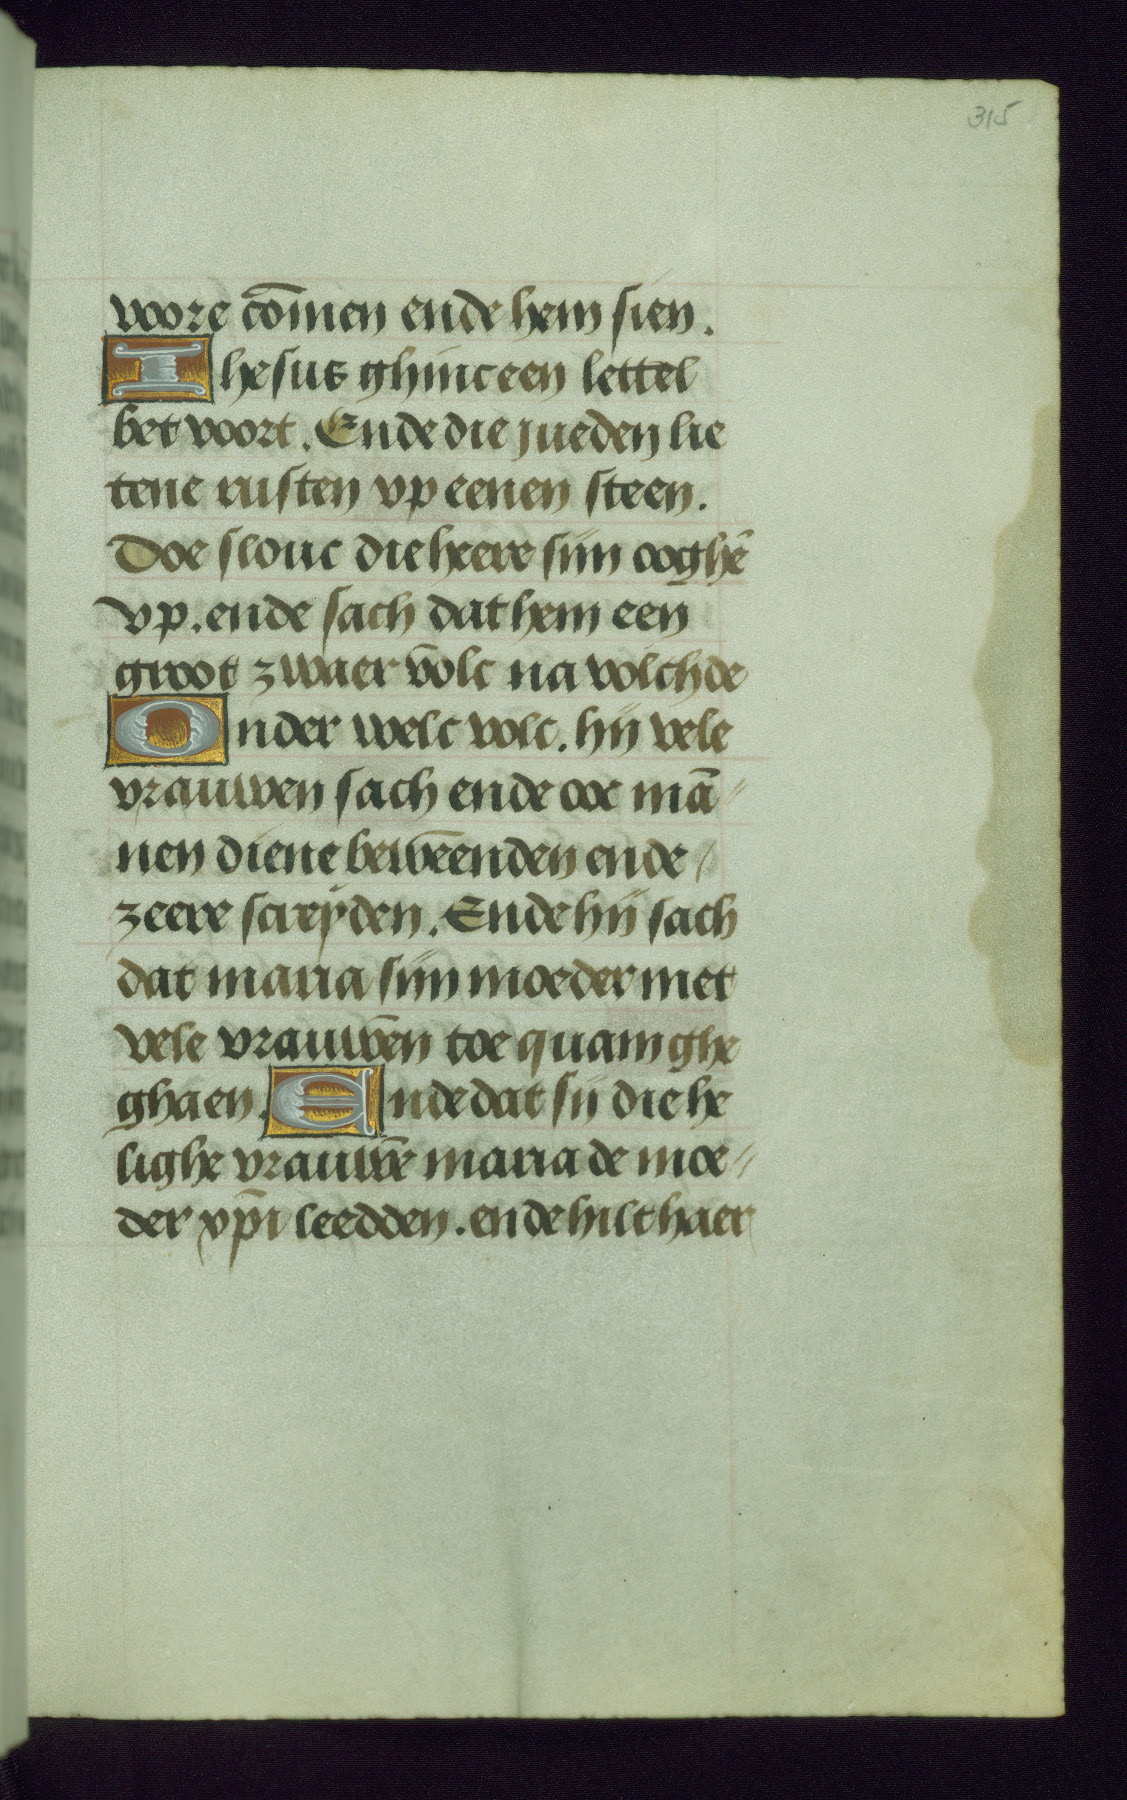 315
voore co᷑men ende hem sien.
Ihesus ghinc een lettel
bet voort. Ende die jueden lie
tene rusten vp eenen steen.
Doe slouc die heere sijn ooghē
vp. ende sach dat hem een
groot zwaer volc na volchde
Onder welc volc. hij vele
vrauwen sach ende ooc mā-
nen diene beweenden ende
zeere screyden. Ende hij sach
dat maria sijn moeder met
vele vrauwen toe quam ghe
ghaen. Ende dat sij die he
lighe vrauwe maria de moe-
der xp̄i leedden. ende hilt haer